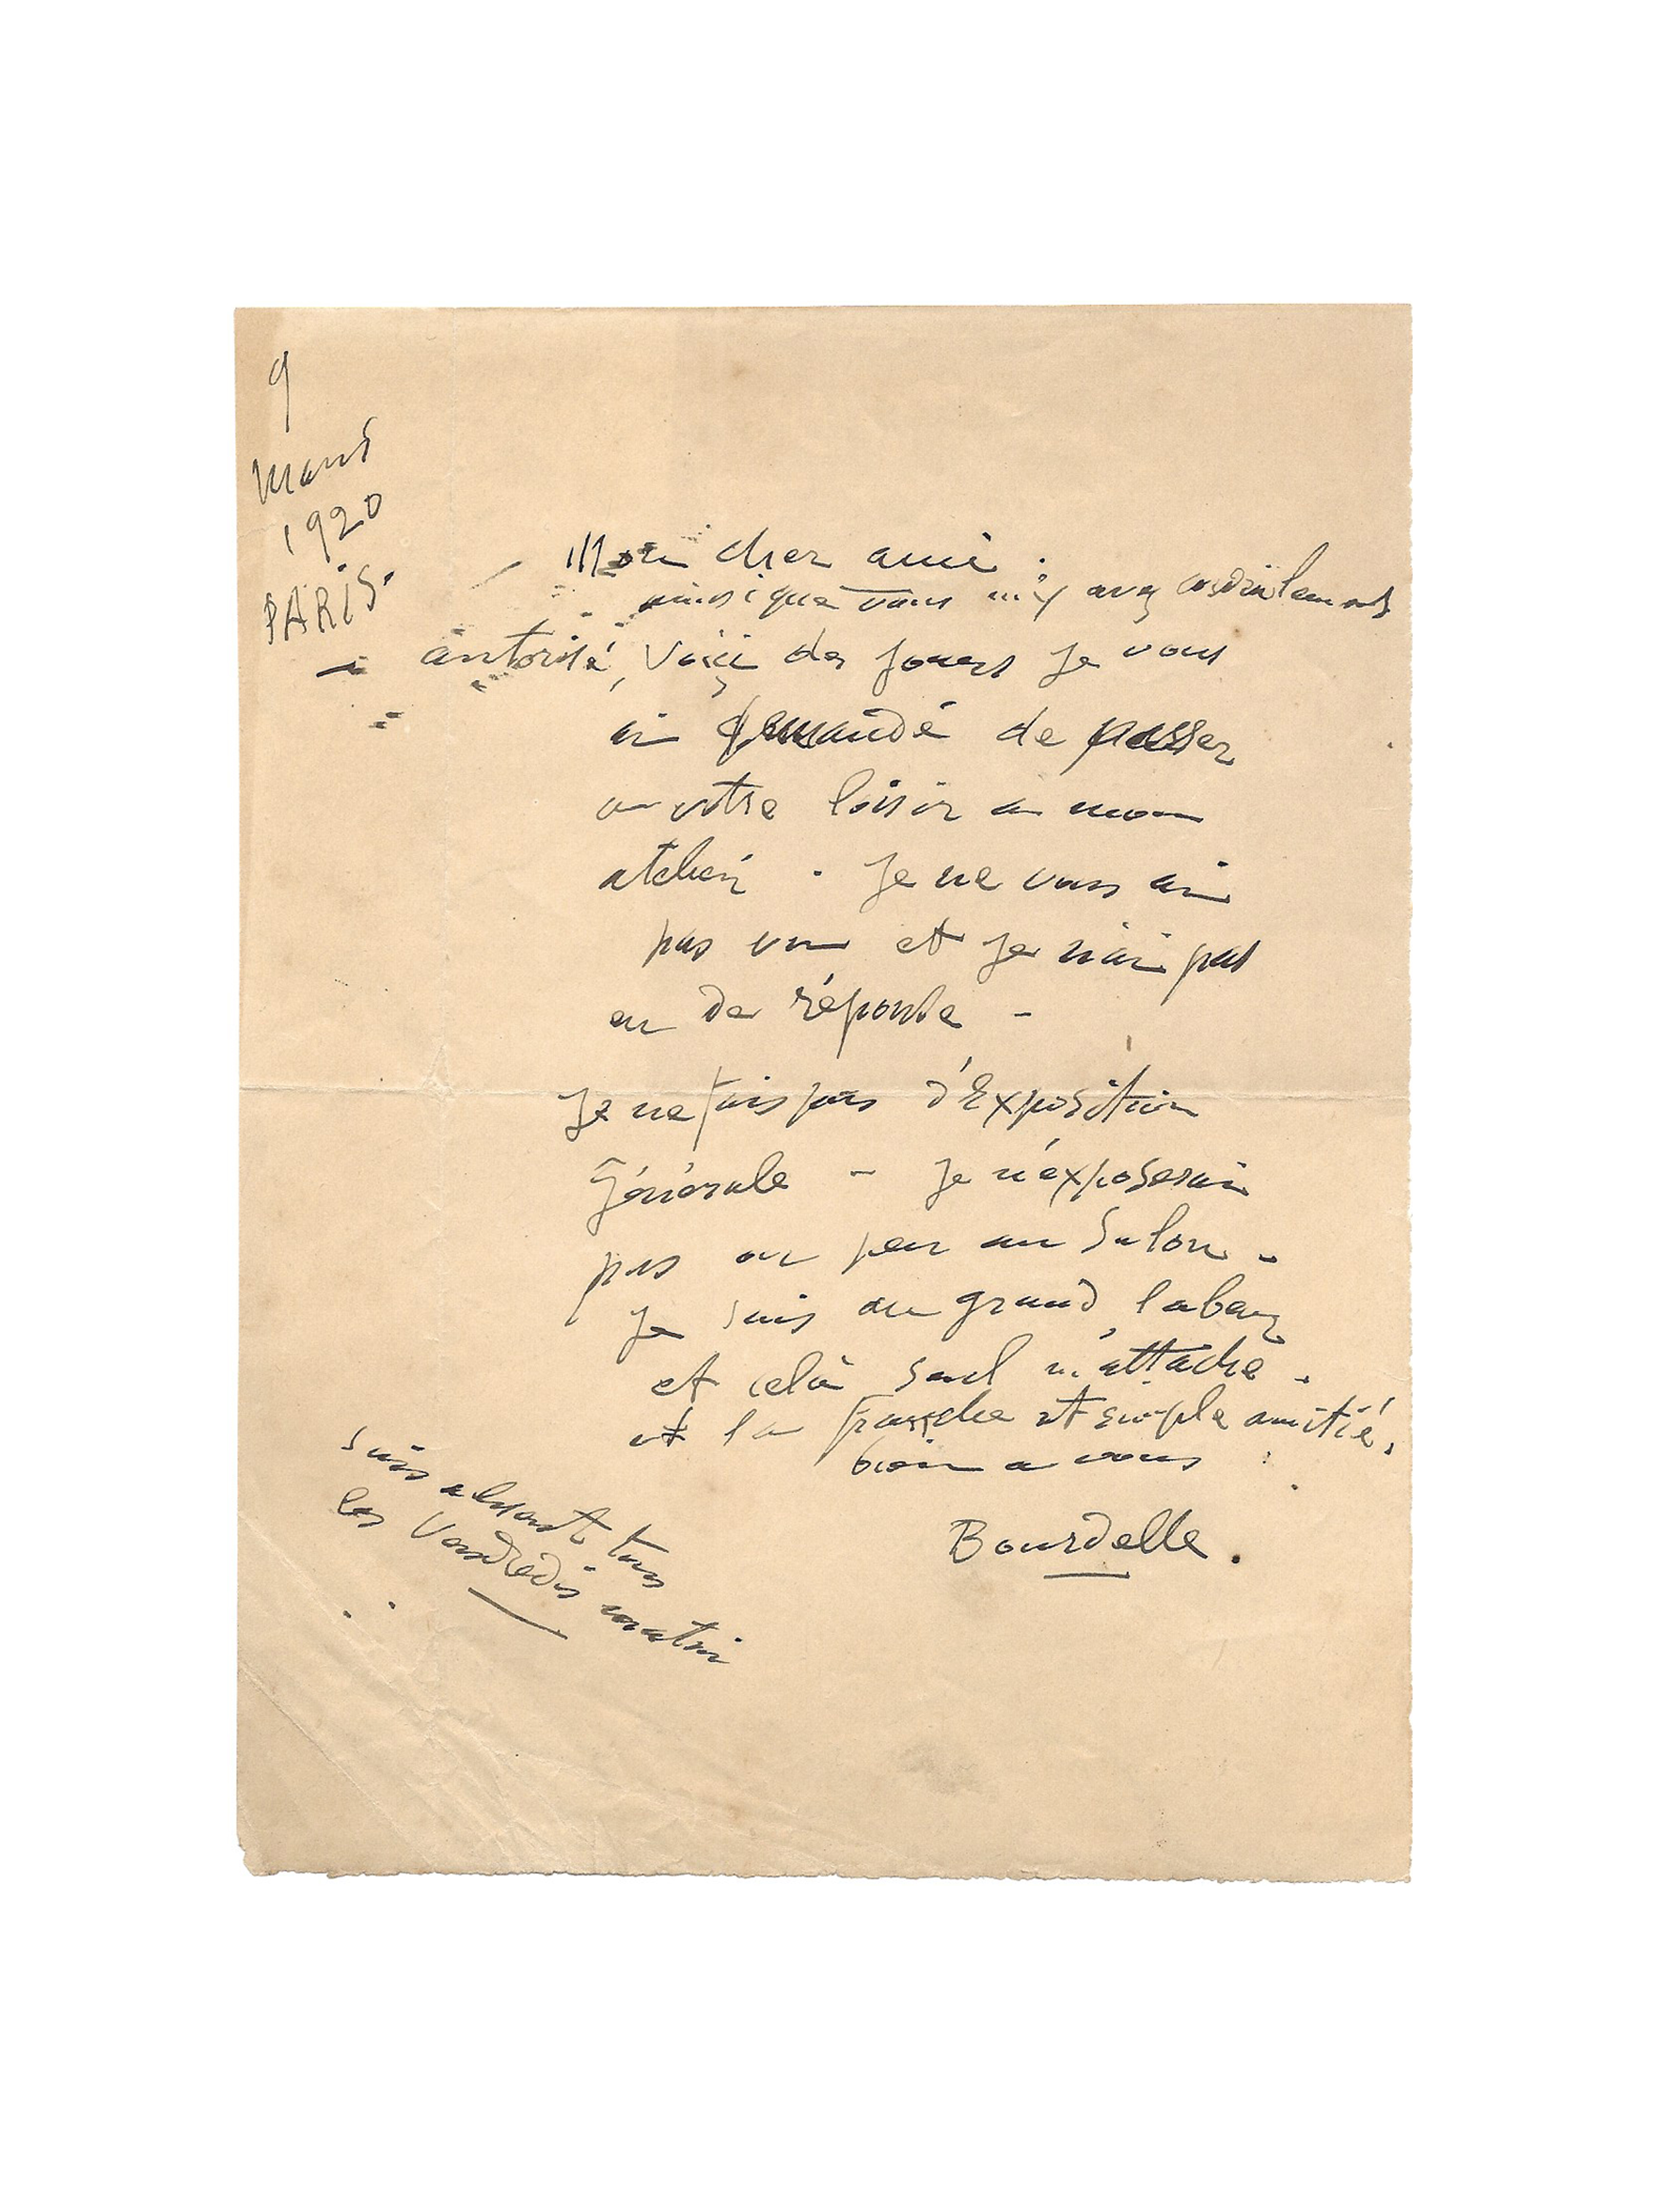 9
Mars
1920
PARIS.
Mon cher ami.
ainsi que vous m'y avez cordialement
autorisé, voici des jours je vous
ai demandé de passer
a votre loisir a mon
atelier. Je ne vous ai
pas vu et je n'ai pas
eu de réponse -
Je ne fais pas d'Exposition
Générale - Je n'exposerai
pas ou peu au Salon -
Je suis au grand labeur
et celà seul m'attache.
et la franche et simple amitié.
bien a vous
Bourdelle.
Suis absent tous
les Vendredis matin